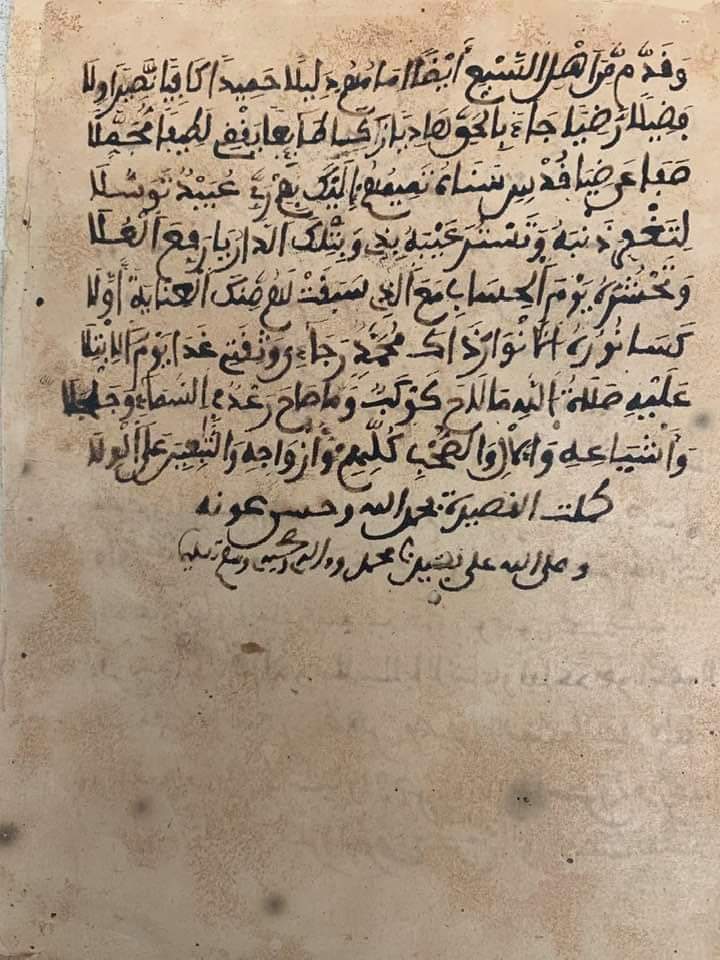 وَقَدِّم مِّنَ اهْلِ التَّسْبِعِ أَيْضًا امَامُهُمْ دَلِيلًا حَمِيدًا كَافِيًا نَصِيرًا وِلَا
فَضِيلًا رَضِيًا جَاءَ بِالْحَقِّ هَادِيًا زَكِيًا طَائِعًا يَقْفِي لَطِيفًا مُجَمَّلَا
صَفِيًا عَنْ ضِيَا قُدْسٍ سَنَاهُ إِلَيْكَ عُبَيْدٌ تَوَسُّلَا
لِتَغْفِرَ ذَنْبَهُ وَتَسْتُرَ عَيْبَهُ بِذِي وَبِتِلْكَ الدَّارِ يَا رَفِيعَ الْعُلَا
وَتَحْشُرَهُ يَوْمَ الْحِسَابِ مَعَ الَّذِي سَبَقَتْ لَهُمْ مِنْكَ الْعِنَايَةُ أَوَّلَا
كَسَا نُورُهُ الْأَنْوَارَ ذَاكَ مُحَمَّدٌ رَجَاءِي وَثِقَتِي غَدًا يَوْمَ الِابْتِلَا
عَلَيْهِ صَلَاةُ اللَّهِ مَا لَاحَ كَوْكَبٌ وَمَا صَاحَ رَعْدٌ فِي السَّمَاءِ وَجَلْجَلَا
وَأَشْيَاعِهِ وَالْآلِ وَالصَّحْبِ كُلِّهِمْ وَأَزْوَاجِهِ وَالتَّابِعِينَ عَلَى الْوِلَا
كملت القصيدة بحمد الله وحسن عونه
وصلى الله على محمد وسلم تسليما